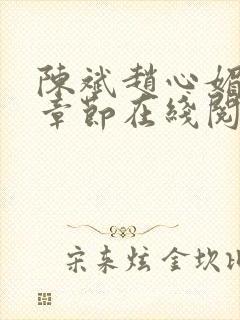 陳斌趙心媚
章節在綫閱
宋来炫 金坎比